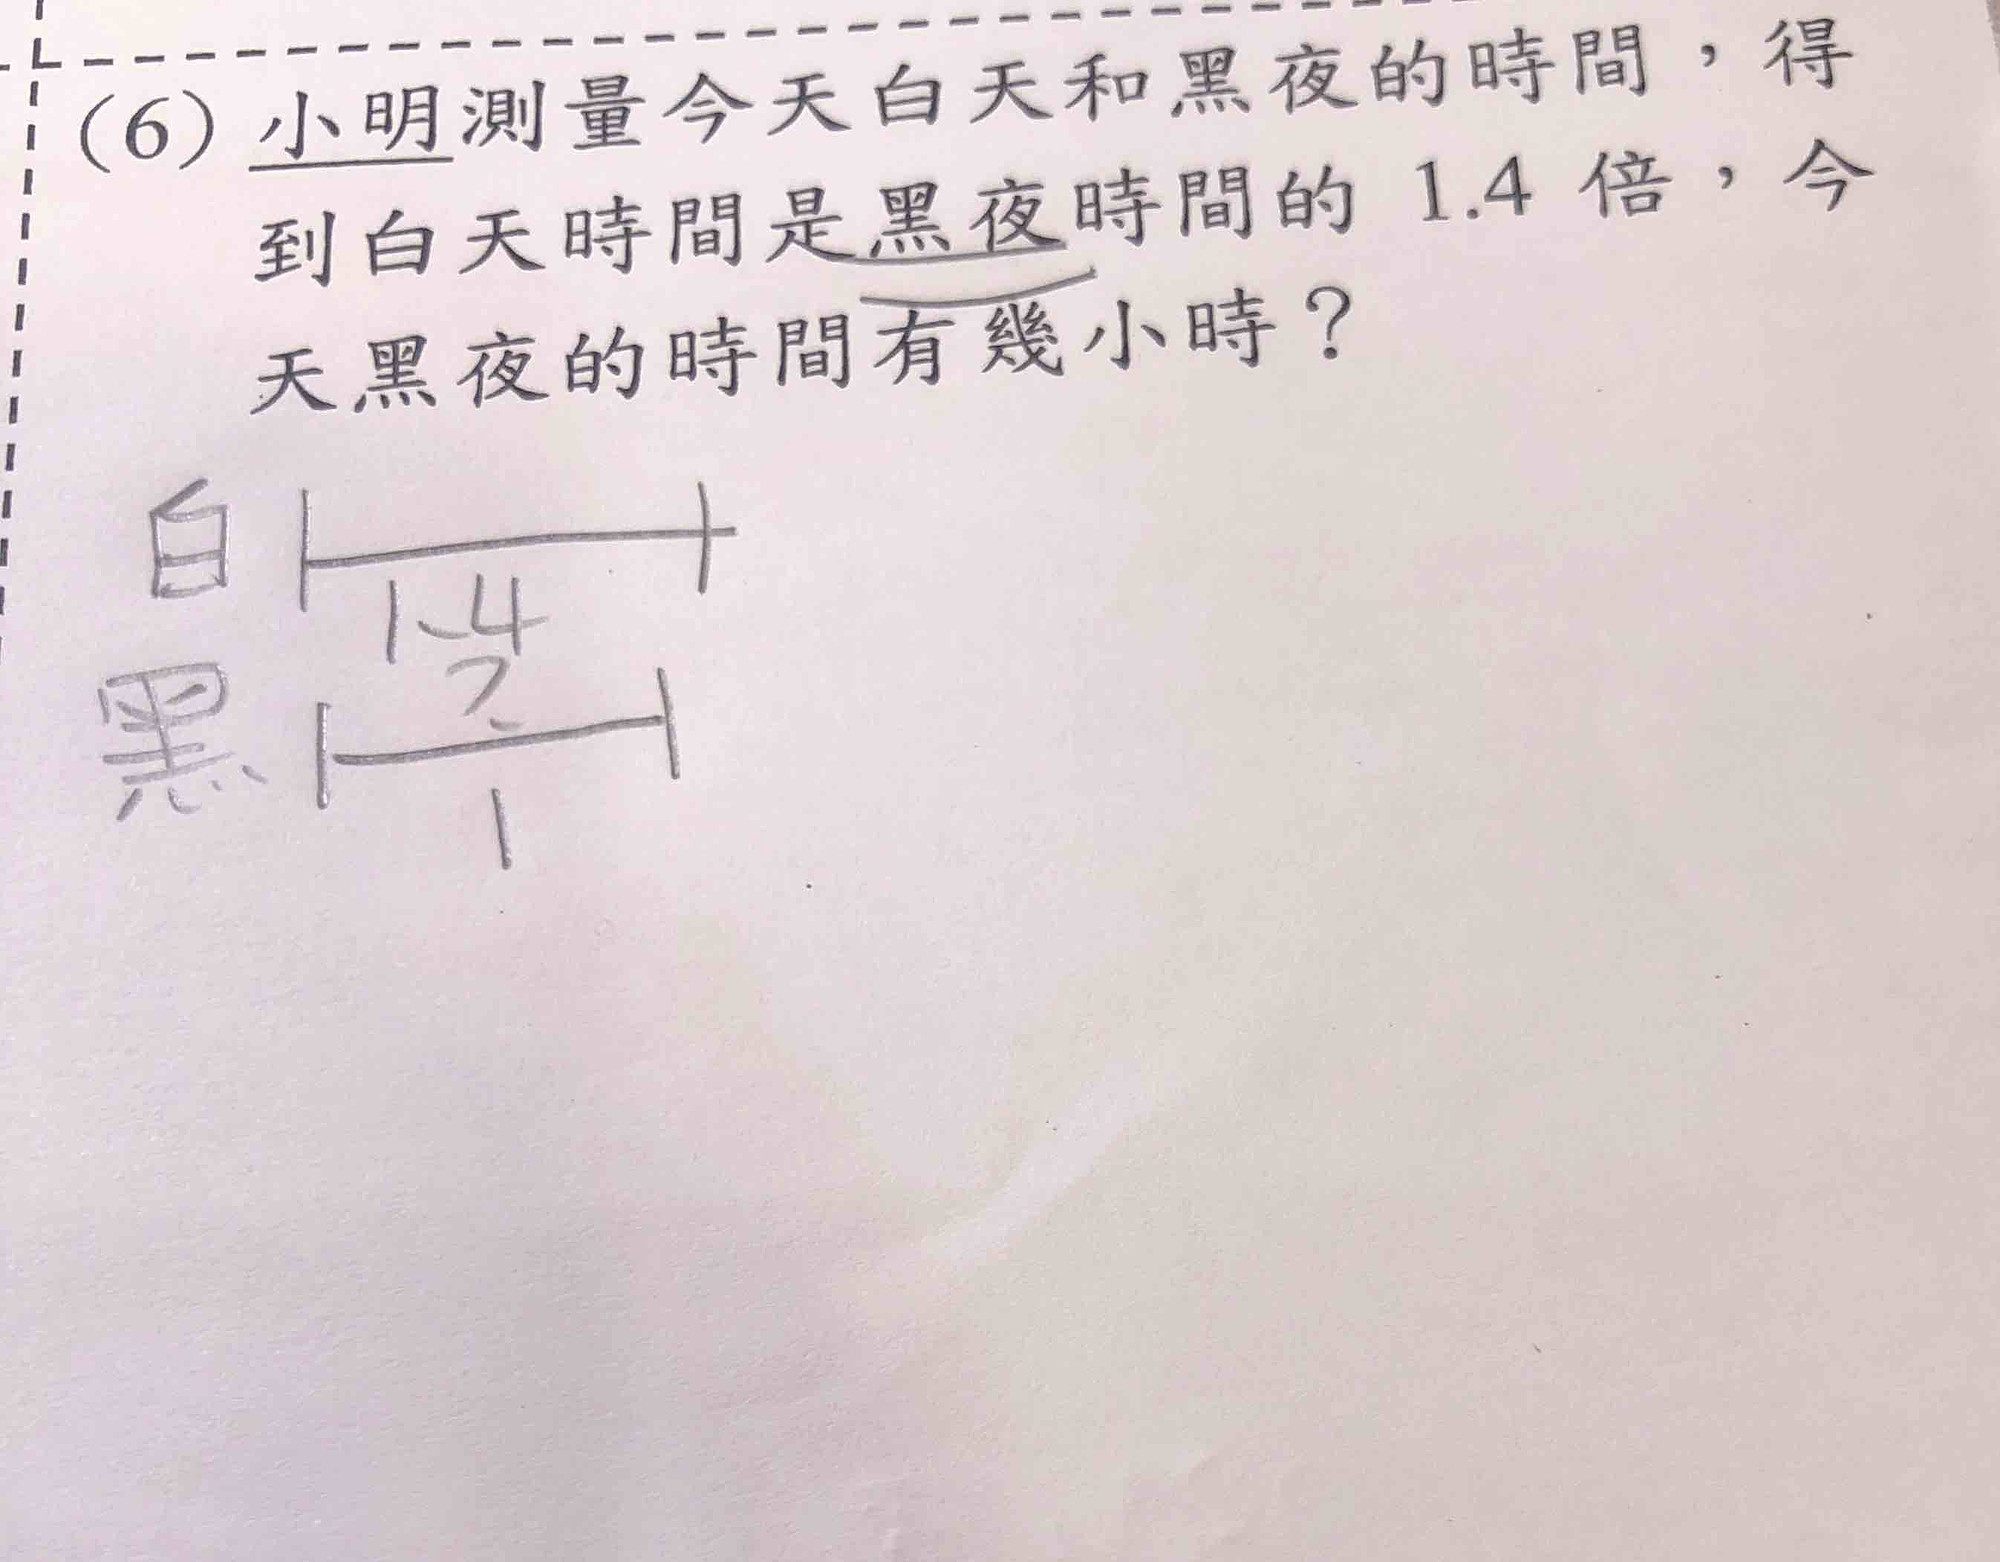 (6) 小明測量今天白天和黑夜的時間，得
到白天時間是黑夜時間的 1.4 倍，今
天黑夜的時間有幾小時？
白
1.4
?
黑
1